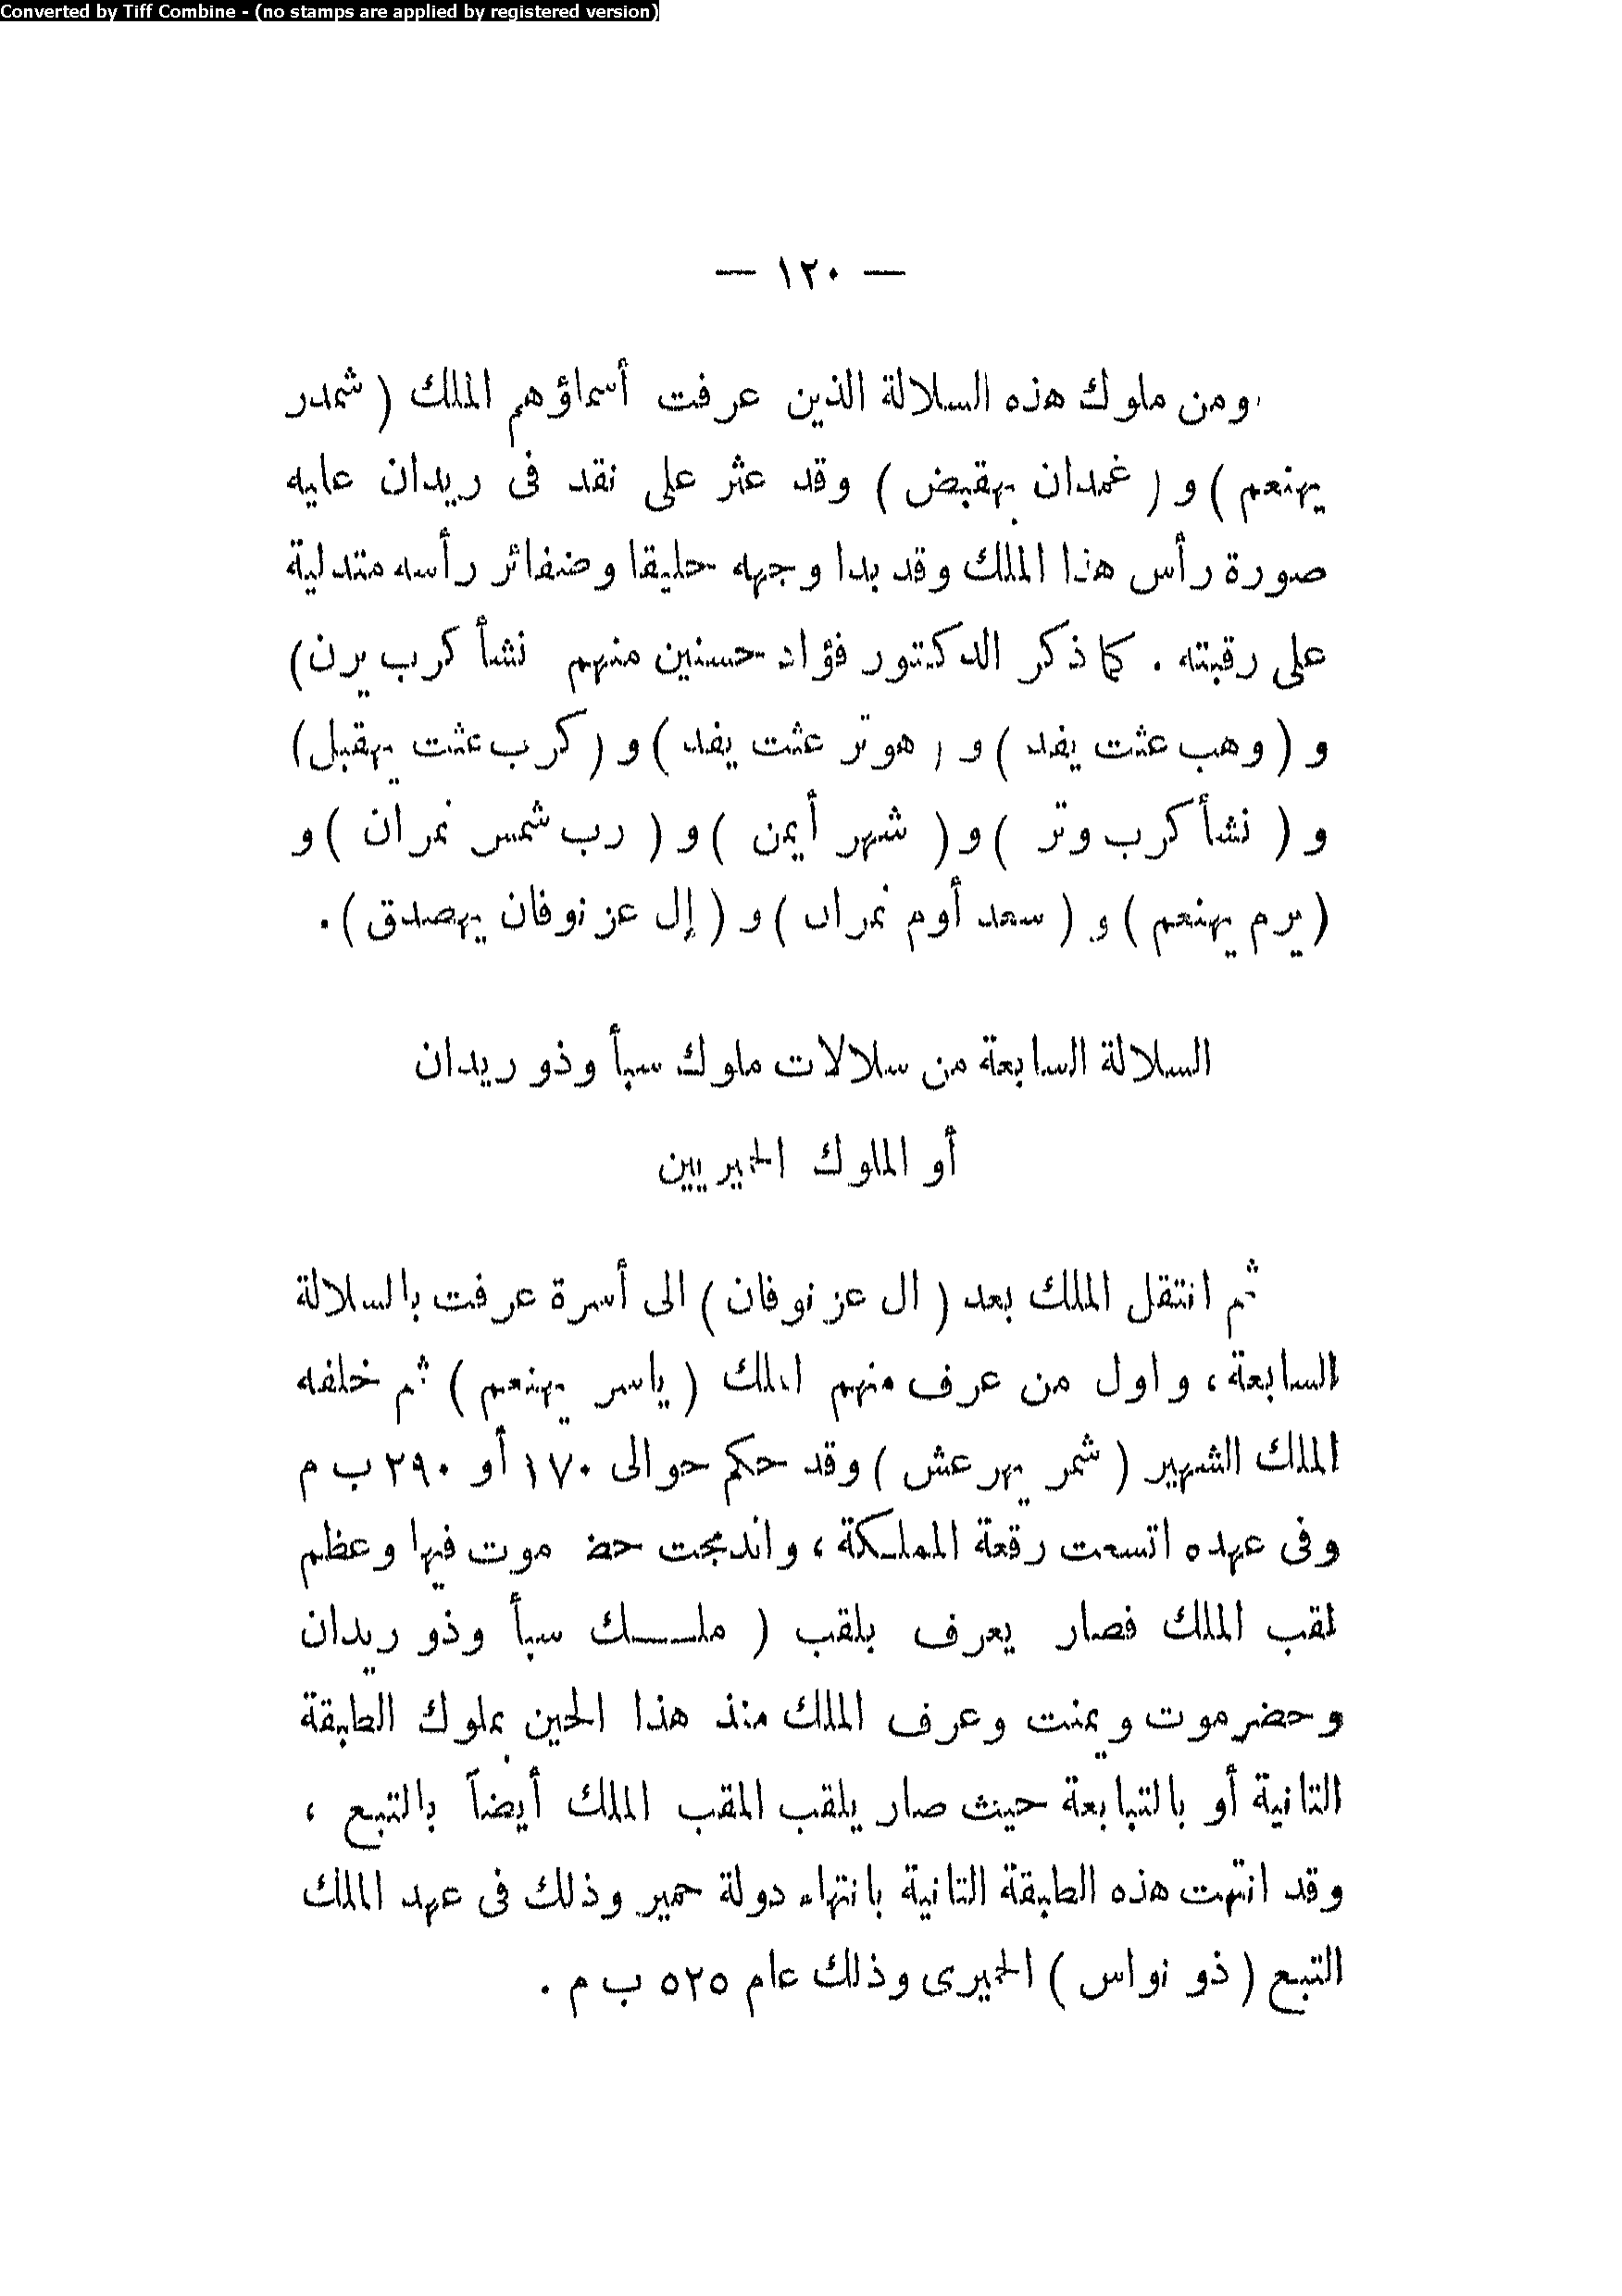 Converted by Tiff Combine - (no stamps are applied by registered version)
— ١٢٠ —
ومن ملوك هذه السلالة الذين عرفت أسماؤهم الملك ( شمدر
يهنعم ) و ( غمدان يهقبض ) وقد عثر على نقد فى ريدان عليه
صورة رأس هذا الملك وقد بدا وجهه حليقا وضفائر رأسه متدلية
على رقبته . كما ذكر الدكتور فؤاد حسنين منهم نشأ كرب يرن)
و ( وهب عثت يفد ) و ( هوتر عثت يفد ) و ( كرب عثت يهقبل)
و ( نشأ كرب وتر ) و ( شهر أيمن ) و ( رب شمس نمران ) و
( يرم يهنعم ) و ( سعد أوم نمران ) و ( إل عز نوفان يهصدق ) .
السلالة السابعة من سلالات ملوك سبأ وذو ريدان
أو الملوك الحميريين
ثم انتقل الملك بعد ( ال عز نوفان ) الى أسرة عرفت بالسلالة
السابعة ، واول من عرف منهم الملك ( ياسر يهنعم ) ثم خلفه
الملك الشهير ( شمر يهرعش ) وقد حكم حوالى ١٧٠ أو ٢٩٠ ب م
وفى عهده اتسعت رقعة المملكة ، واندمجت حضرموت فيها وعظم
لقب الملك فصار يعرف بلقب ( ملك سبأ وذو ريدان
وحضرموت ويمنت وعرف الملك منذ هذا الحين بملوك الطبقة
الثانية أو بالتبابعة حيث صار يلقب المقب الملك أيضاً بالتبع ،
وقد انتهت هذه الطبقة الثانية بانتهاء دولة حمير وذلك فى عهد الملك
التبع ( ذو نواس ) الحميرى وذلك عام ٥٢٥ ب م .